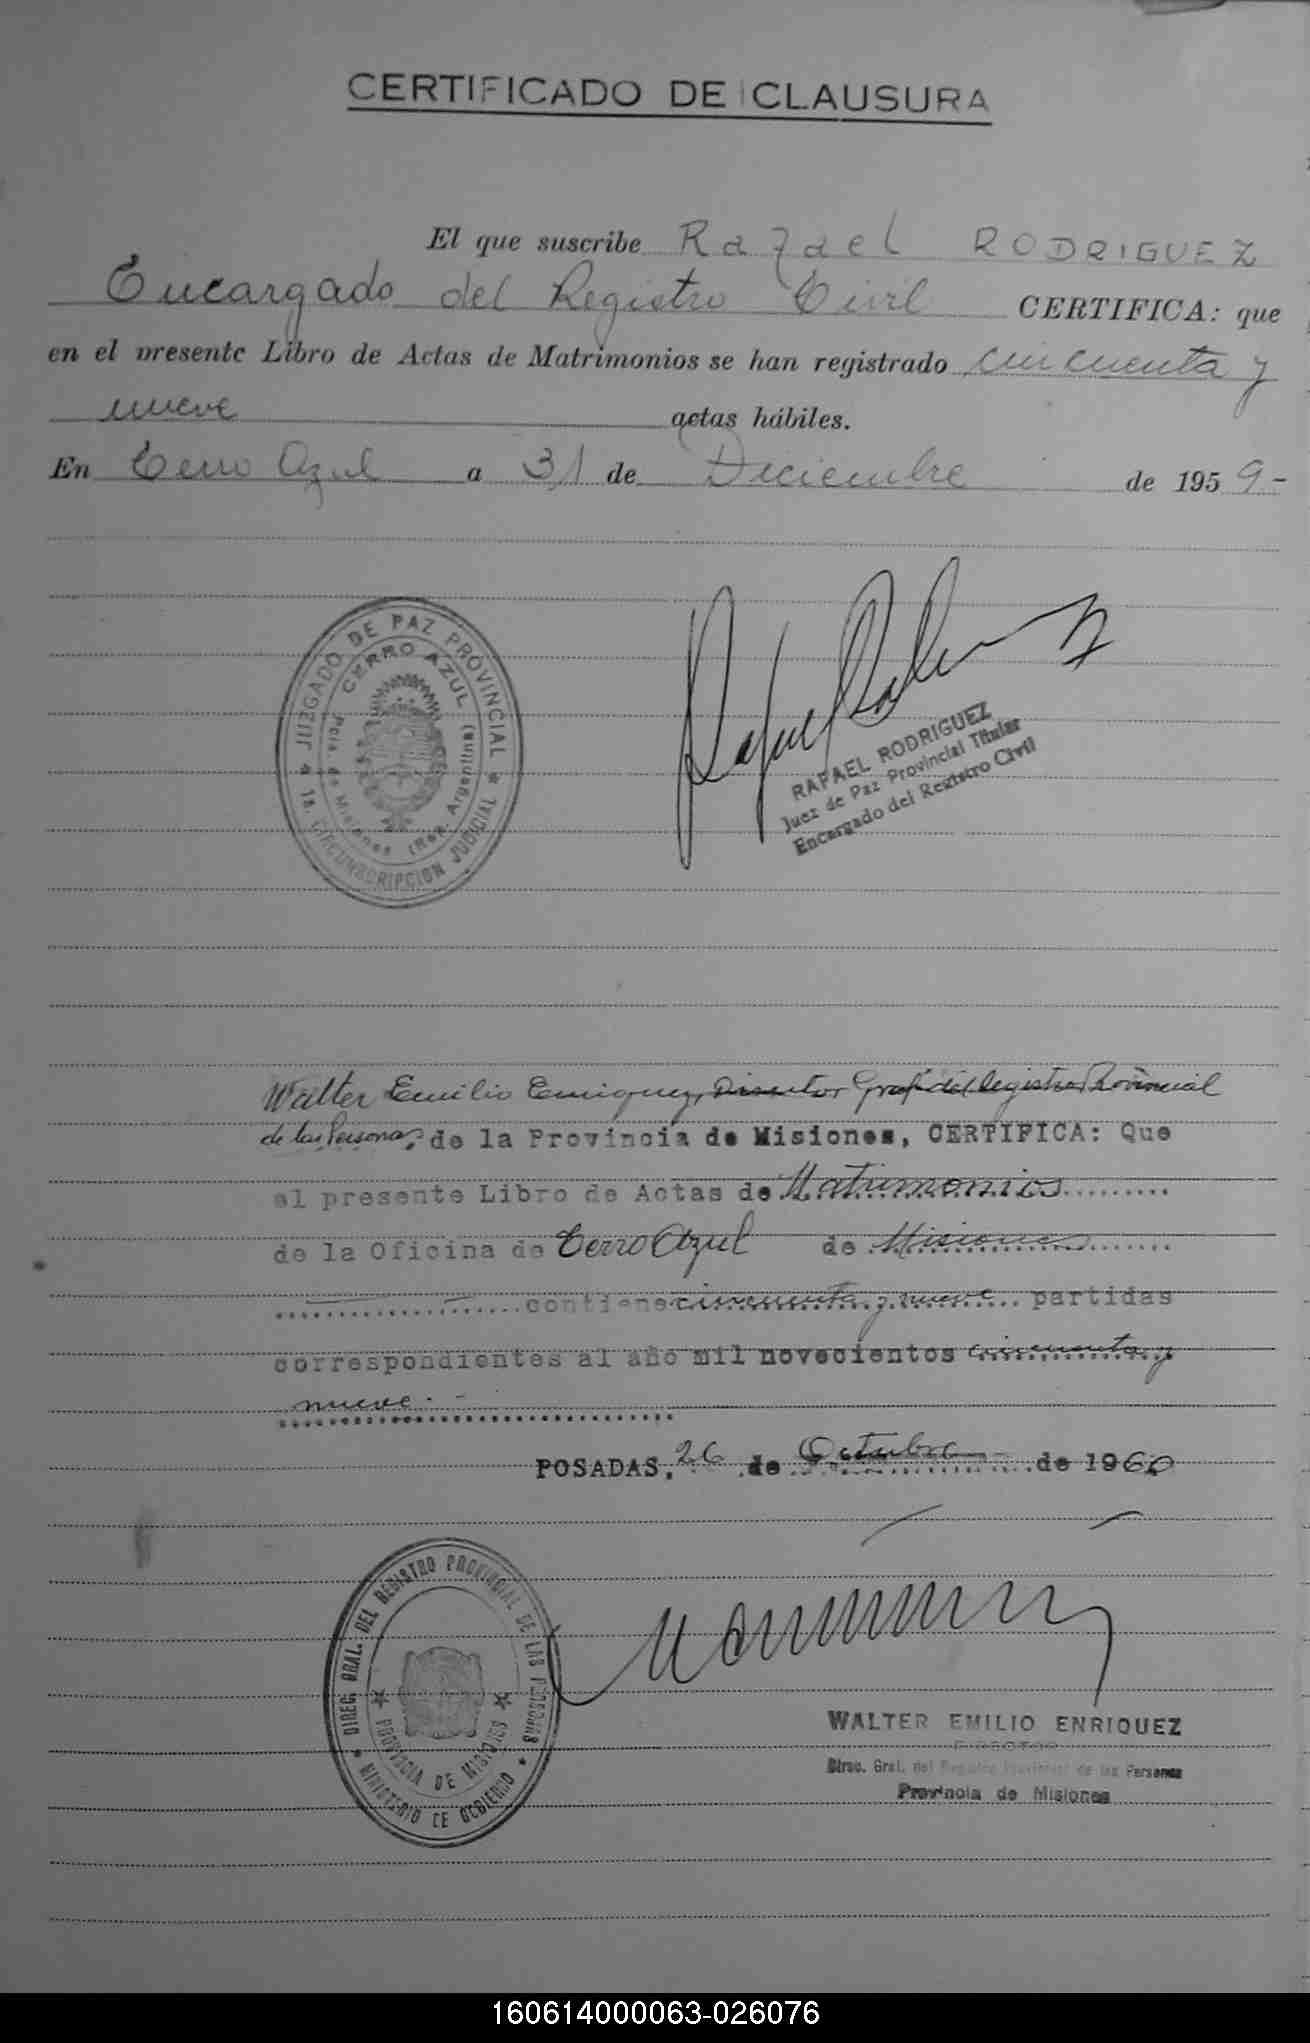 CERTIFICADO DE CLAUSURA
El que suscribe Rafael RODRIGUEZ
Encargado del Registro Civil CERTIFICA: que
en el presente Libro de Actas de Matrimonios se han registrado cincuenta y
nueve actas hábiles.
En Cerro Azul a 31 de Diciembre de 1959-
JUZGADO DE PAZ PROVINCIAL
CERRO AZUL
Pcia. de Misiones (Rep. Argentina)
1a. CIRCUNSCRIPCION JUDICIAL
Rafael Rodriguez
RAFAEL RODRIGUEZ
Juez de Paz Provincial Titular
Encargado del Registro Civil
Walter Emilio Enriquez, Director Gral del Registro Provincial
de las Personas, de la Provincia de Misiones, CERTIFICA: Que
el presente Libro de Actas de Matrimonios
de la Oficina de Cerro Azul de Misiones
contiene cincuenta y nueve partidas
correspondientes al año mil novecientos cincuenta y
nueve.-
POSADAS, 26 de Octubre de 1960
DIREC. GRAL. DEL REGISTRO PROVINCIAL DE LAS PERSONAS
PROVINCIA DE MISIONES
MINISTERIO DE GOBIERNO
WALTER EMILIO ENRIQUEZ
DIRECTOR
Direc. Gral. del Registro Provincial de las Personas
Provincia de Misiones
160614000063-026076